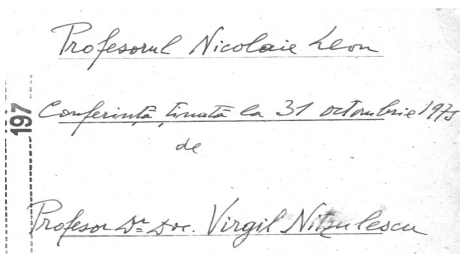 Profesorul Nicolaie Leon
Conferință ținută la 31 octombrie 1975
de
Profesor Dr. Doc. Virgil Nitzulescu
197